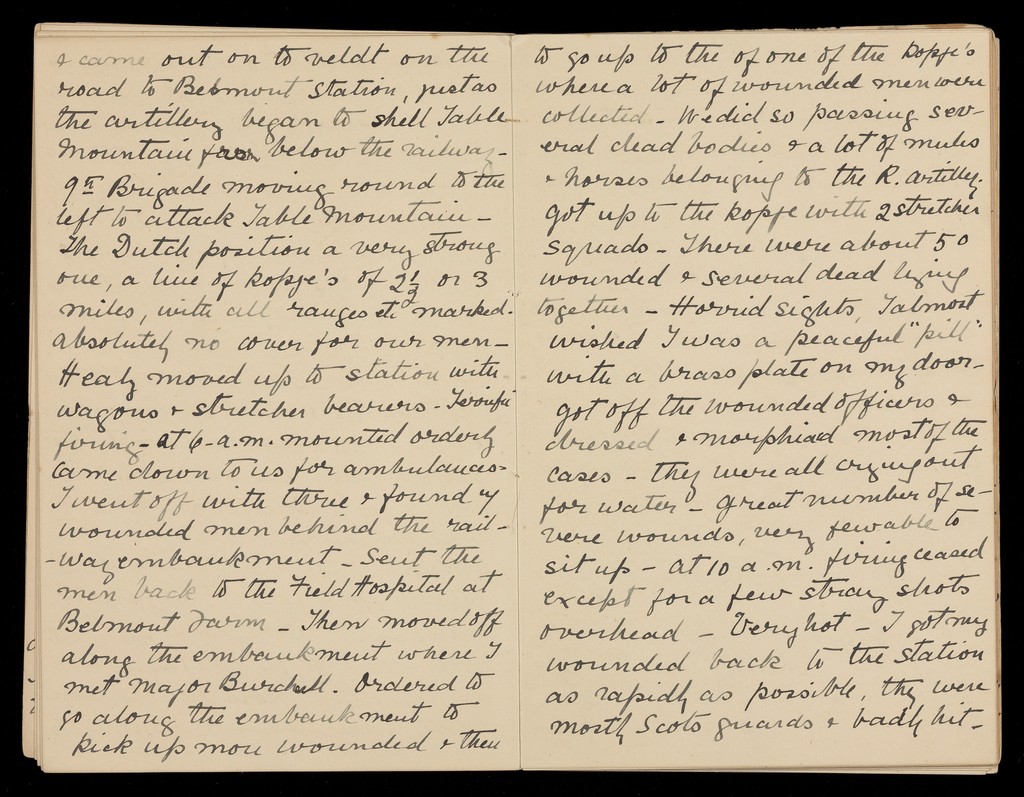 & came out on to veldt on the
road to Belmont Station, just as
the artillery began to shell Table
Mountain from below the railway -
9th Brigade moving round to the
left to attack Table Mountain -
The Dutch position a very strong
one, a line of kopje's of 2½ or 3
miles, with all ranges etc marked.
absolutely no cover for our men -
Healy moved up to station with
wagons & stretcher bearers - Terrific
firing - at 6 - a.m. mounted orderly
came down to us for ambulances -
I went off with three & found
wounded men behind the rail-
-way embankment - Sent the
men back to the Field Hospital at
Belmont Farm - Then moved off
along the embankment where I
met Major Burchell. Ordered to
go along the embankment to
pick up more wounded & then
to go up to the of one of the kopje's
where a lot of wounded men were
collected - We did so passing sev-
eral dead bodies & a lot of mules
& horses belonging to the R. artillery.
got up to the kopje with 2 stretcher
squads - There were about 50
wounded & several dead lying
together - Horrid sights, I almost
wished I was a peaceful "pill"
with a brass plate on my door -
got off the wounded officers &
dressed & morphiad most of the
cases - they were all crying out
for water - great number of se-
vere wounds, very few able to
sit up - at 10 a.m. firing ceased
except for a few stray shots
overhead - Very hot - I got my
wounded back to the station
as rapidly as possible, they were
mostly Scots guards & badly hit -